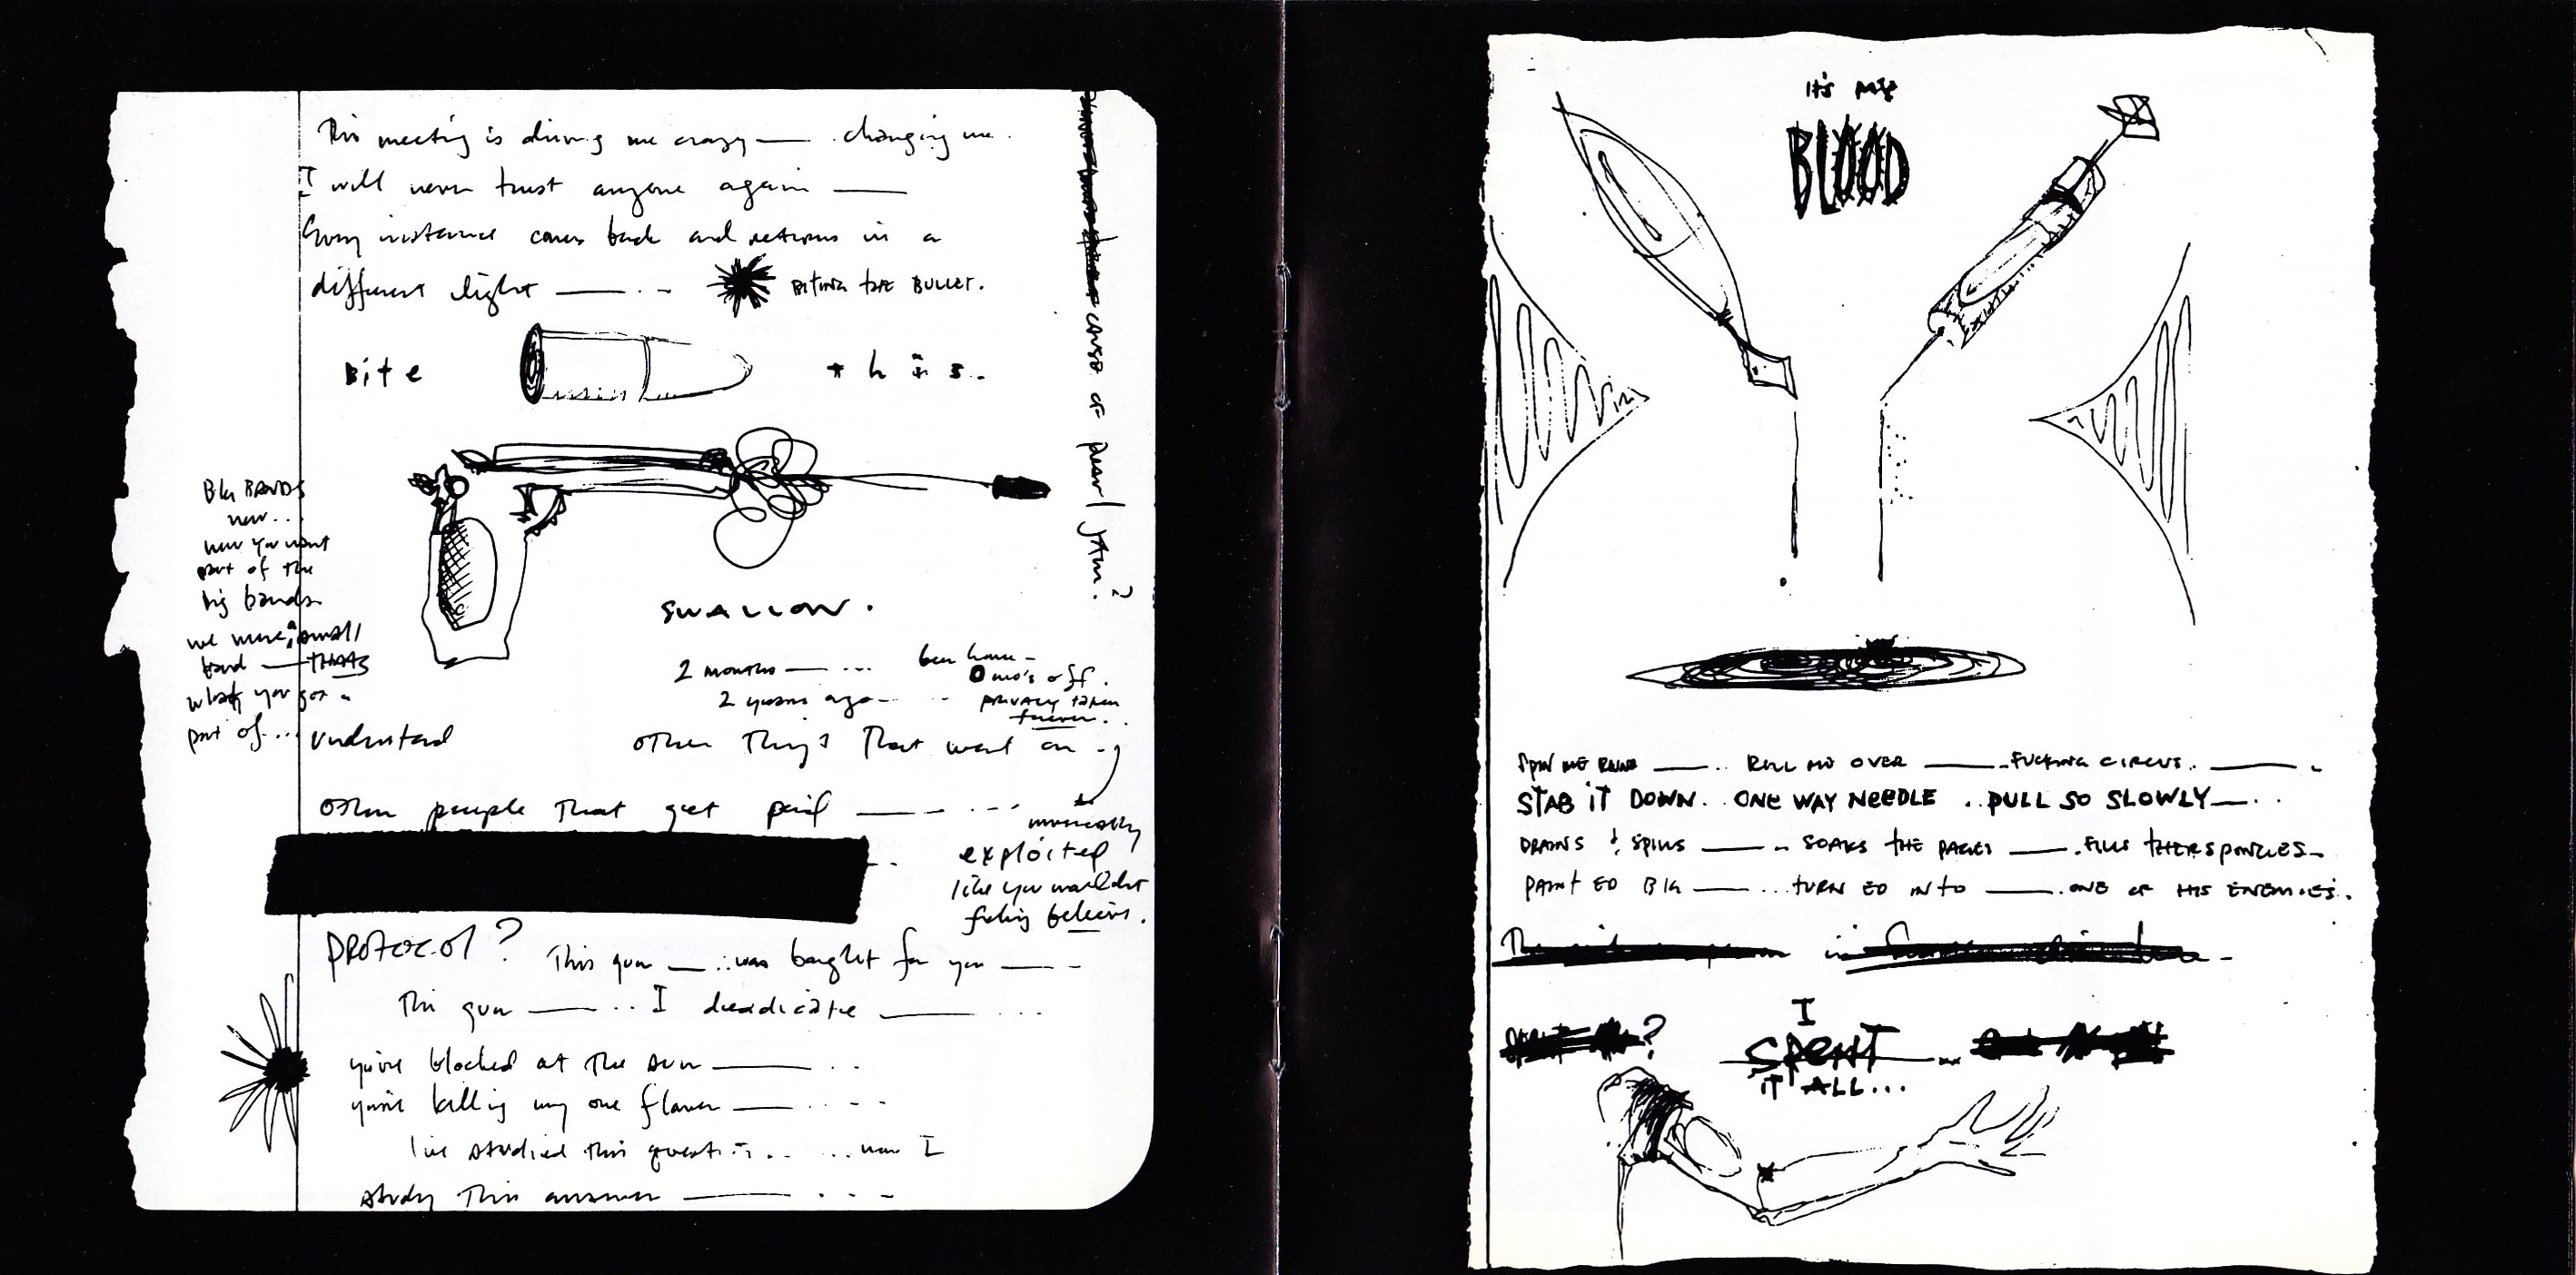 This meeting is driving me crazy — changing me.
I will never trust anyone again —
Every instance comes back and returns in a
different light — . . - BITING THE BULLET.
Bite this.
cause of pearl jam.?
BIG BANDS
now...
now you want
part of the
big bands
we were a small
band — THATS
what you got a
part of...
SWALLOW.
2 months — ...
2 years ago - . . -
been home -
0 mo's off.
privacy taken
forever..
understand
other things that went on - .
other people that get paid — - ...
musically
exploited
like you wouldnt
fuking believe.
PROTOCOl?
This gun — .. was bought for you — -
This gun — .. I deadicate — ...
you've blocked out the sun — . .
you're killing my one flower — . . - -
I've studied this question.. ... now I
study this answer — . - -
it's my
BLOOD
SPIN ME ROUND — .. ROLL ME OVER — .FUCKING CIRCUS. — .
STAB iT DOWN.. ONE WAY NEEDLE ..PULL SO SLOWLY— . .
DRAINS & SPILLS — .. SOAKS THE PAGES — .FILLS THER SPONGES.
PAINTED BIG — ...TURNED INTO — .ONE OF HIS ENEMIES.
?
I
SPENT
IT ALL...